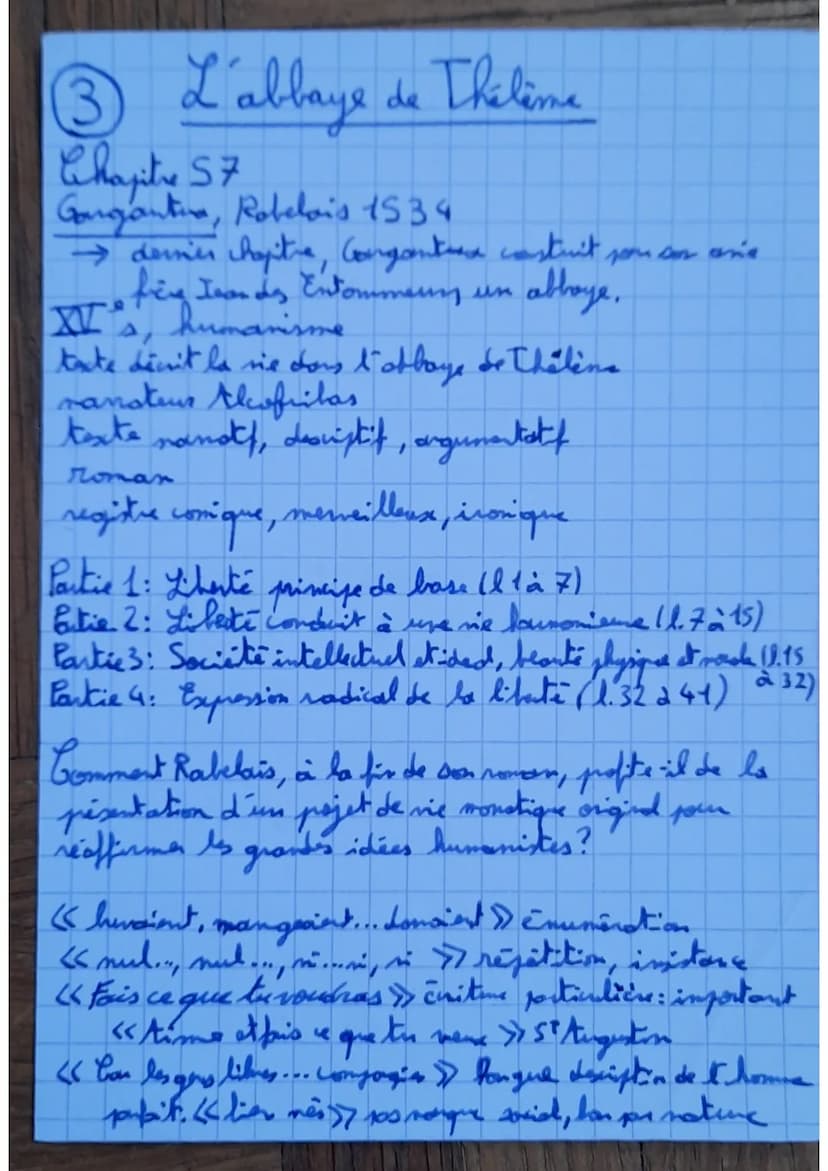 3 L'abbaye de Thélème
Chapitre 57
Gargantua, Rabelais 1534
→ dernier chapitre, Gargantua construit pour son amie
frère Jean des Entommeurs un abbaye.
XVe s, humanisme
texte décrit la vie dans l'abbaye de Thélème
narrateur Alcofribas
texte narratif, descriptif, argumentatif
roman
registre comique, merveilleux, ironique
Partie 1: Liberté principe de base (l 1 à 7)
Partie 2: Liberté conduit à une vie harmonieuse (l. 7 à 15)
Partie 3: Société intellectuel et ideal, beauté physique et morale (l. 15
à 32)
Partie 4: Expression radical de la liberté (l. 32 à 41)
Comment Rabelais, à la fin de son roman, profite-il de la
présentation d'un projet de vie monastique original pour
réaffirmer les grandes idées humanistes?
« buvaient, mangeaient... dormaient » énumération
« nul..., nul..., ni...ni, ni » répétition, insistance
« Fais ce que tu voudras » écriture particulière: important
« Aime et fais ce que tu veux » St Augustin
« Car les gens libres... compagnies » longue description de l'homme
parfait. « bien nés » pas marque social, bon par nature